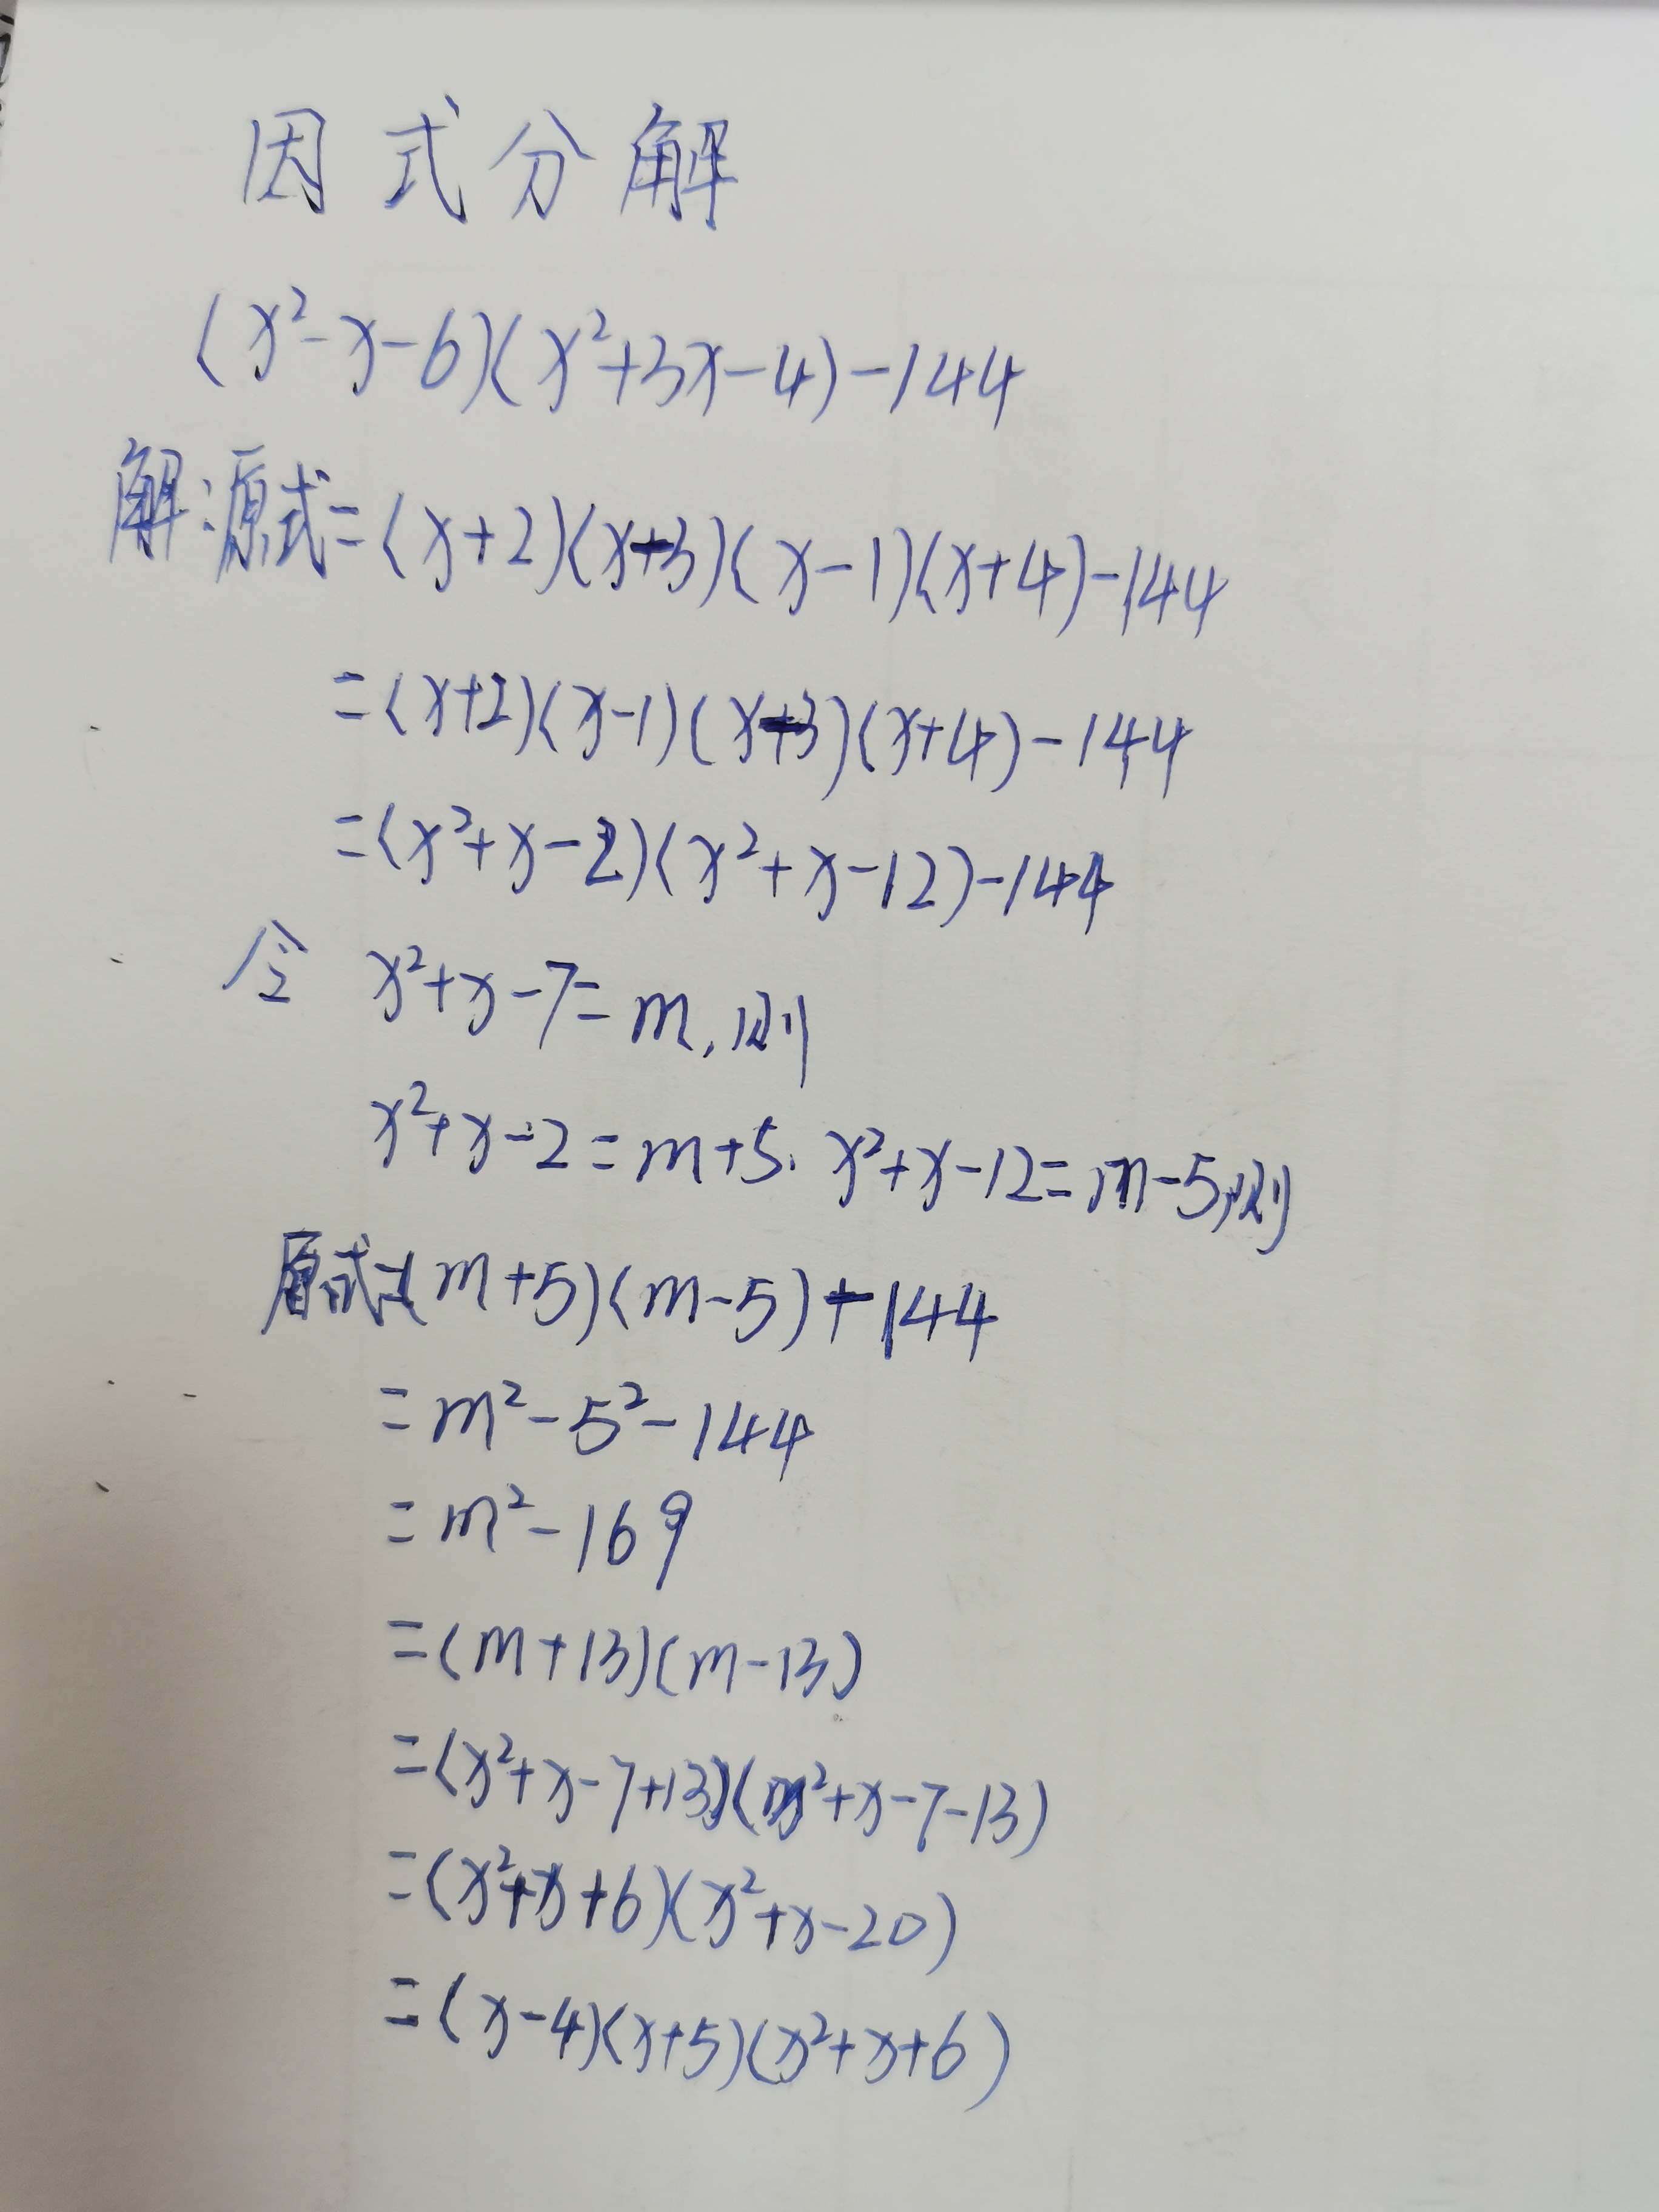 因式分解
(x²-x-6)(x²+3x-4)-144
解:源式=(x+2)(x-3)(x-1)(x+4)-144
=(x+2)(x-1)(x-3)(x+4)-144
=(x²+x-2)(x²+x-12)-144
令 x²+x-7=m,则
x²+x-2=m+5. x²+x-12=m-5,则
原式=(m+5)(m-5)-144
=m²-5²-144
=m²-169
=(m+13)(m-13)
=(x²+x-7+13)(x²+x-7-13)
=(x²+x+6)(x²+x-20)
=(x-4)(x+5)(x²+x+6)